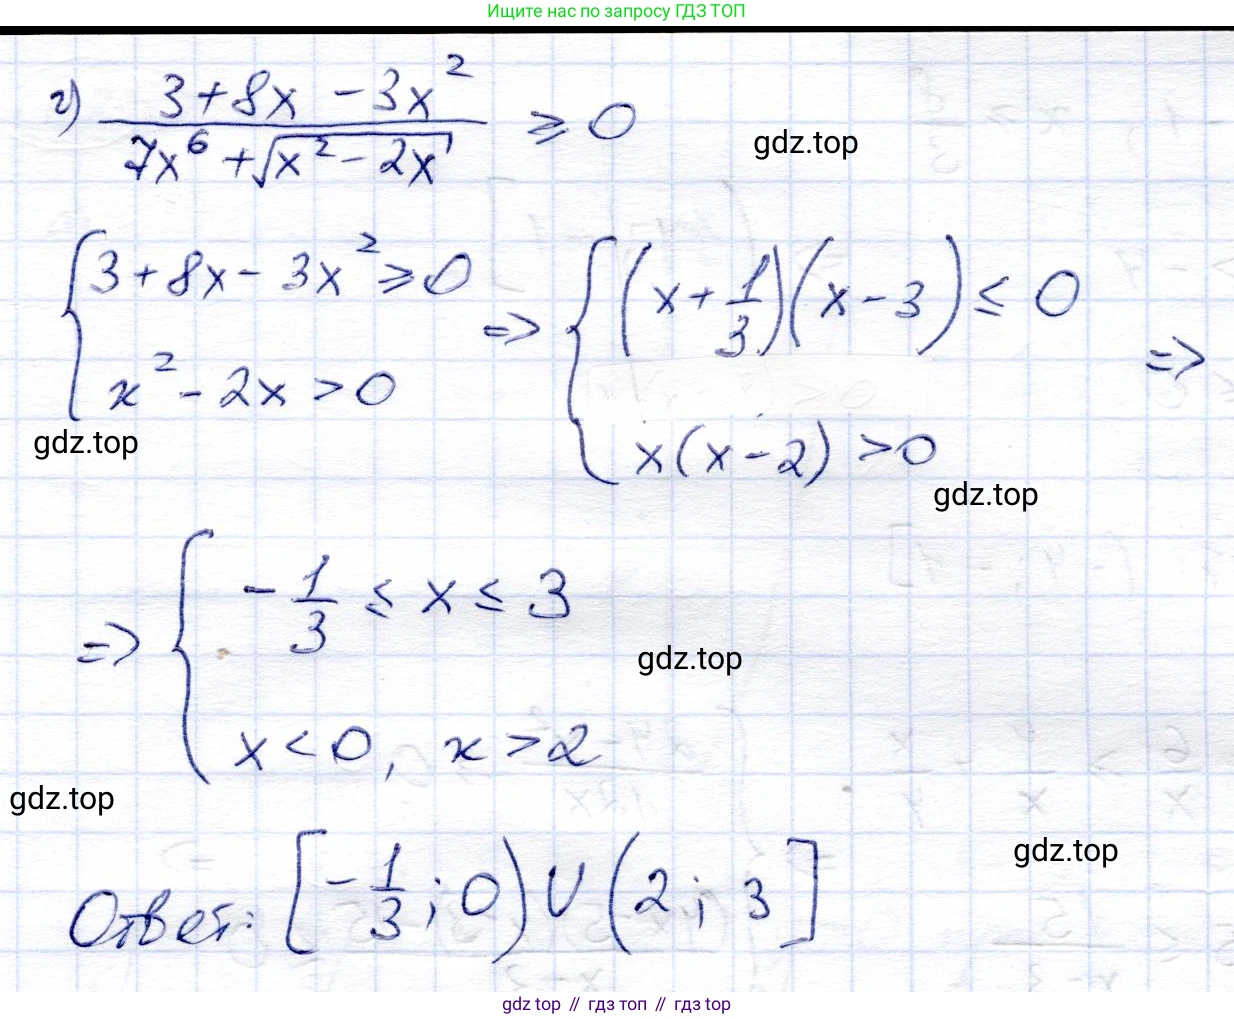 Ищите нас по запросу ГДЗ ТОП
г) (3 + 8x - 3x²)/(7x⁶ + √(x² - 2x)) ≥ 0
gdz.top
{ 3 + 8x - 3x² ≥ 0 ; x² - 2x > 0 => { (x + 1/3)(x - 3) ≤ 0 ; x(x - 2) > 0 =>
gdz.top
gdz.top
=> { -1/3 ≤ x ≤ 3 ; x < 0, x > 2
gdz.top
gdz.top
gdz.top
Ответ: [-1/3; 0) ∪ (2; 3]
gdz top // гдз топ // гдз top